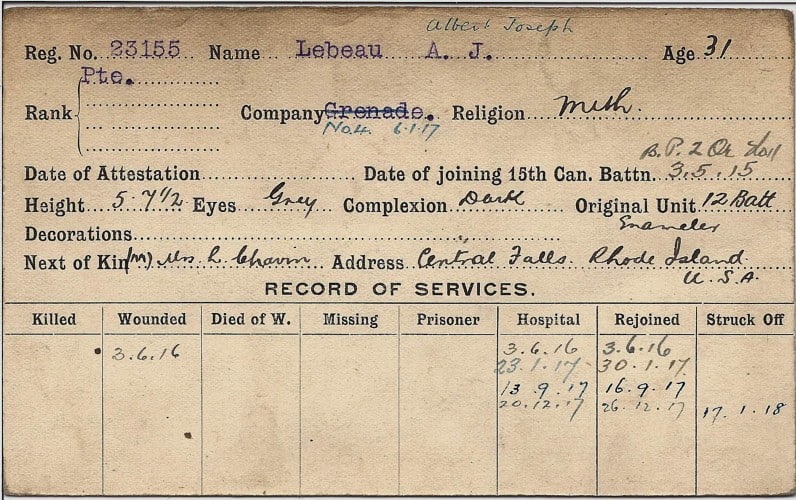 Albert Joseph
Reg. No. 23155 Name Lebeau A. J. Age 31
Pte.
Rank Company Grenade. Religion Meth.
No 4. 6.1.17
B.P. 2 Or
Date of Attestation Date of joining 15th Can. Battn. 3.5.15
Height 5 7 1/2 Eyes Grey Complexion Dark Original Unit 12 Batt
Enameler
Decorations
Next of Kin (M) Mrs L. Chavin Address Central Falls. Rhode Island.
U.S.A.
RECORD OF SERVICES.
Killed Wounded Died of W. Missing Prisoner Hospital Rejoined Struck Off
3.6.16 3.6.16 3.6.16
23.1.17 30.1.17
13.9.17 16.9.17
20.12.17 26.12.17 17.1.18